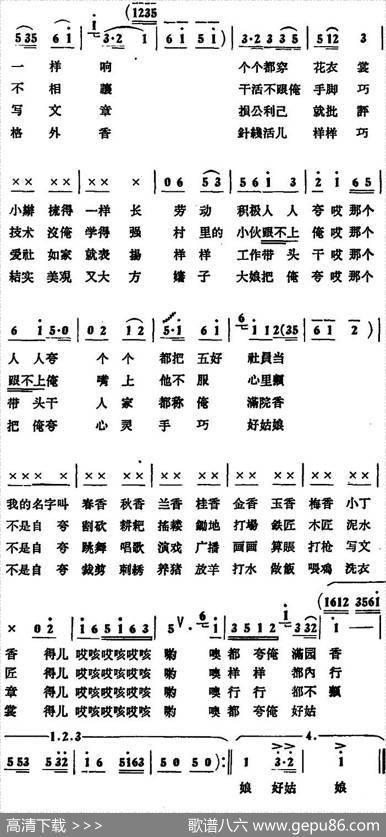 (1235
535 6 i | i 3·2 i | 6 i i 5 i ) | 3·2 3 5 | 5 i2 3
一 样 响 个个都穿 花衣裳
不 相 让 干活不跟俺 手脚巧
写 文 章 损公利己 就批評
格 外 香 針綫活儿 样样巧
× × × × | × × × | 0 6 5 3 | 5 6 i 3 | 2 i 6 5
小辮 梳得 一样 长 劳 动 积极人 人 夸哎 那个
技术 沒俺 学得 强 村 里的 小伙跟不上 俺哎 那个
爱社 如家 就表 揚 样 样 工作带 头 干哎 那个
結实 美观 又大 方 嬸 子 大娘把 俺 夸哎 那个
6 i 5·0 | 0 2 i 2 | 5·i 6 i | 6 i i 2 (3 5 | 6 i 2 )
人 人夸 个 个 都把 五好 社員当
跟不上俺 嘴 上 他不 服 心里顫
带 头干 人 家 都称 俺 滿院香
把 俺夸 心 灵 手 巧 好姑娘
× × × × | × × | × × | × × | × × | × × | × × | × ×
我的 名字叫 春香 秋香 兰香 桂香 金香 玉香 梅香 小丁
不是 自 夸 割砍 耕耙 搖耧 鋤地 打場 鉄匠 木匠 泥水
不是 自 夸 跳舞 唱歌 演戏 广播 画画 算賬 打枪 写文
不是 自 夸 裁剪 刺綉 养猪 放羊 打水 做飯 喂鸡 洗衣
(1612 3561
× 0 2 | i 6 5 i 6 3 | 5 ˅ 6 i | 3 5 i 2 i 3 32 | i —
香 得儿 哎咳哎咳哎咳 喲 噢 都 夸俺 滿园 香
匠 得儿 哎咳哎咳哎咳 喲 噢 样 样 都內 行
章 得儿 哎咳哎咳哎咳 喲 噢 行 行 都不 顫
裳 得儿 哎咳哎咳哎咳 喲 噢 都 夸俺 好姑
1.2.3 4.
5 53 5 32 | i 6 5 i63 | 5 0 5 0 ) :‖ i 3·2 | i ‖
娘 好姑 娘
高清下载 >>> 歌谱八六 www.gepu86.com